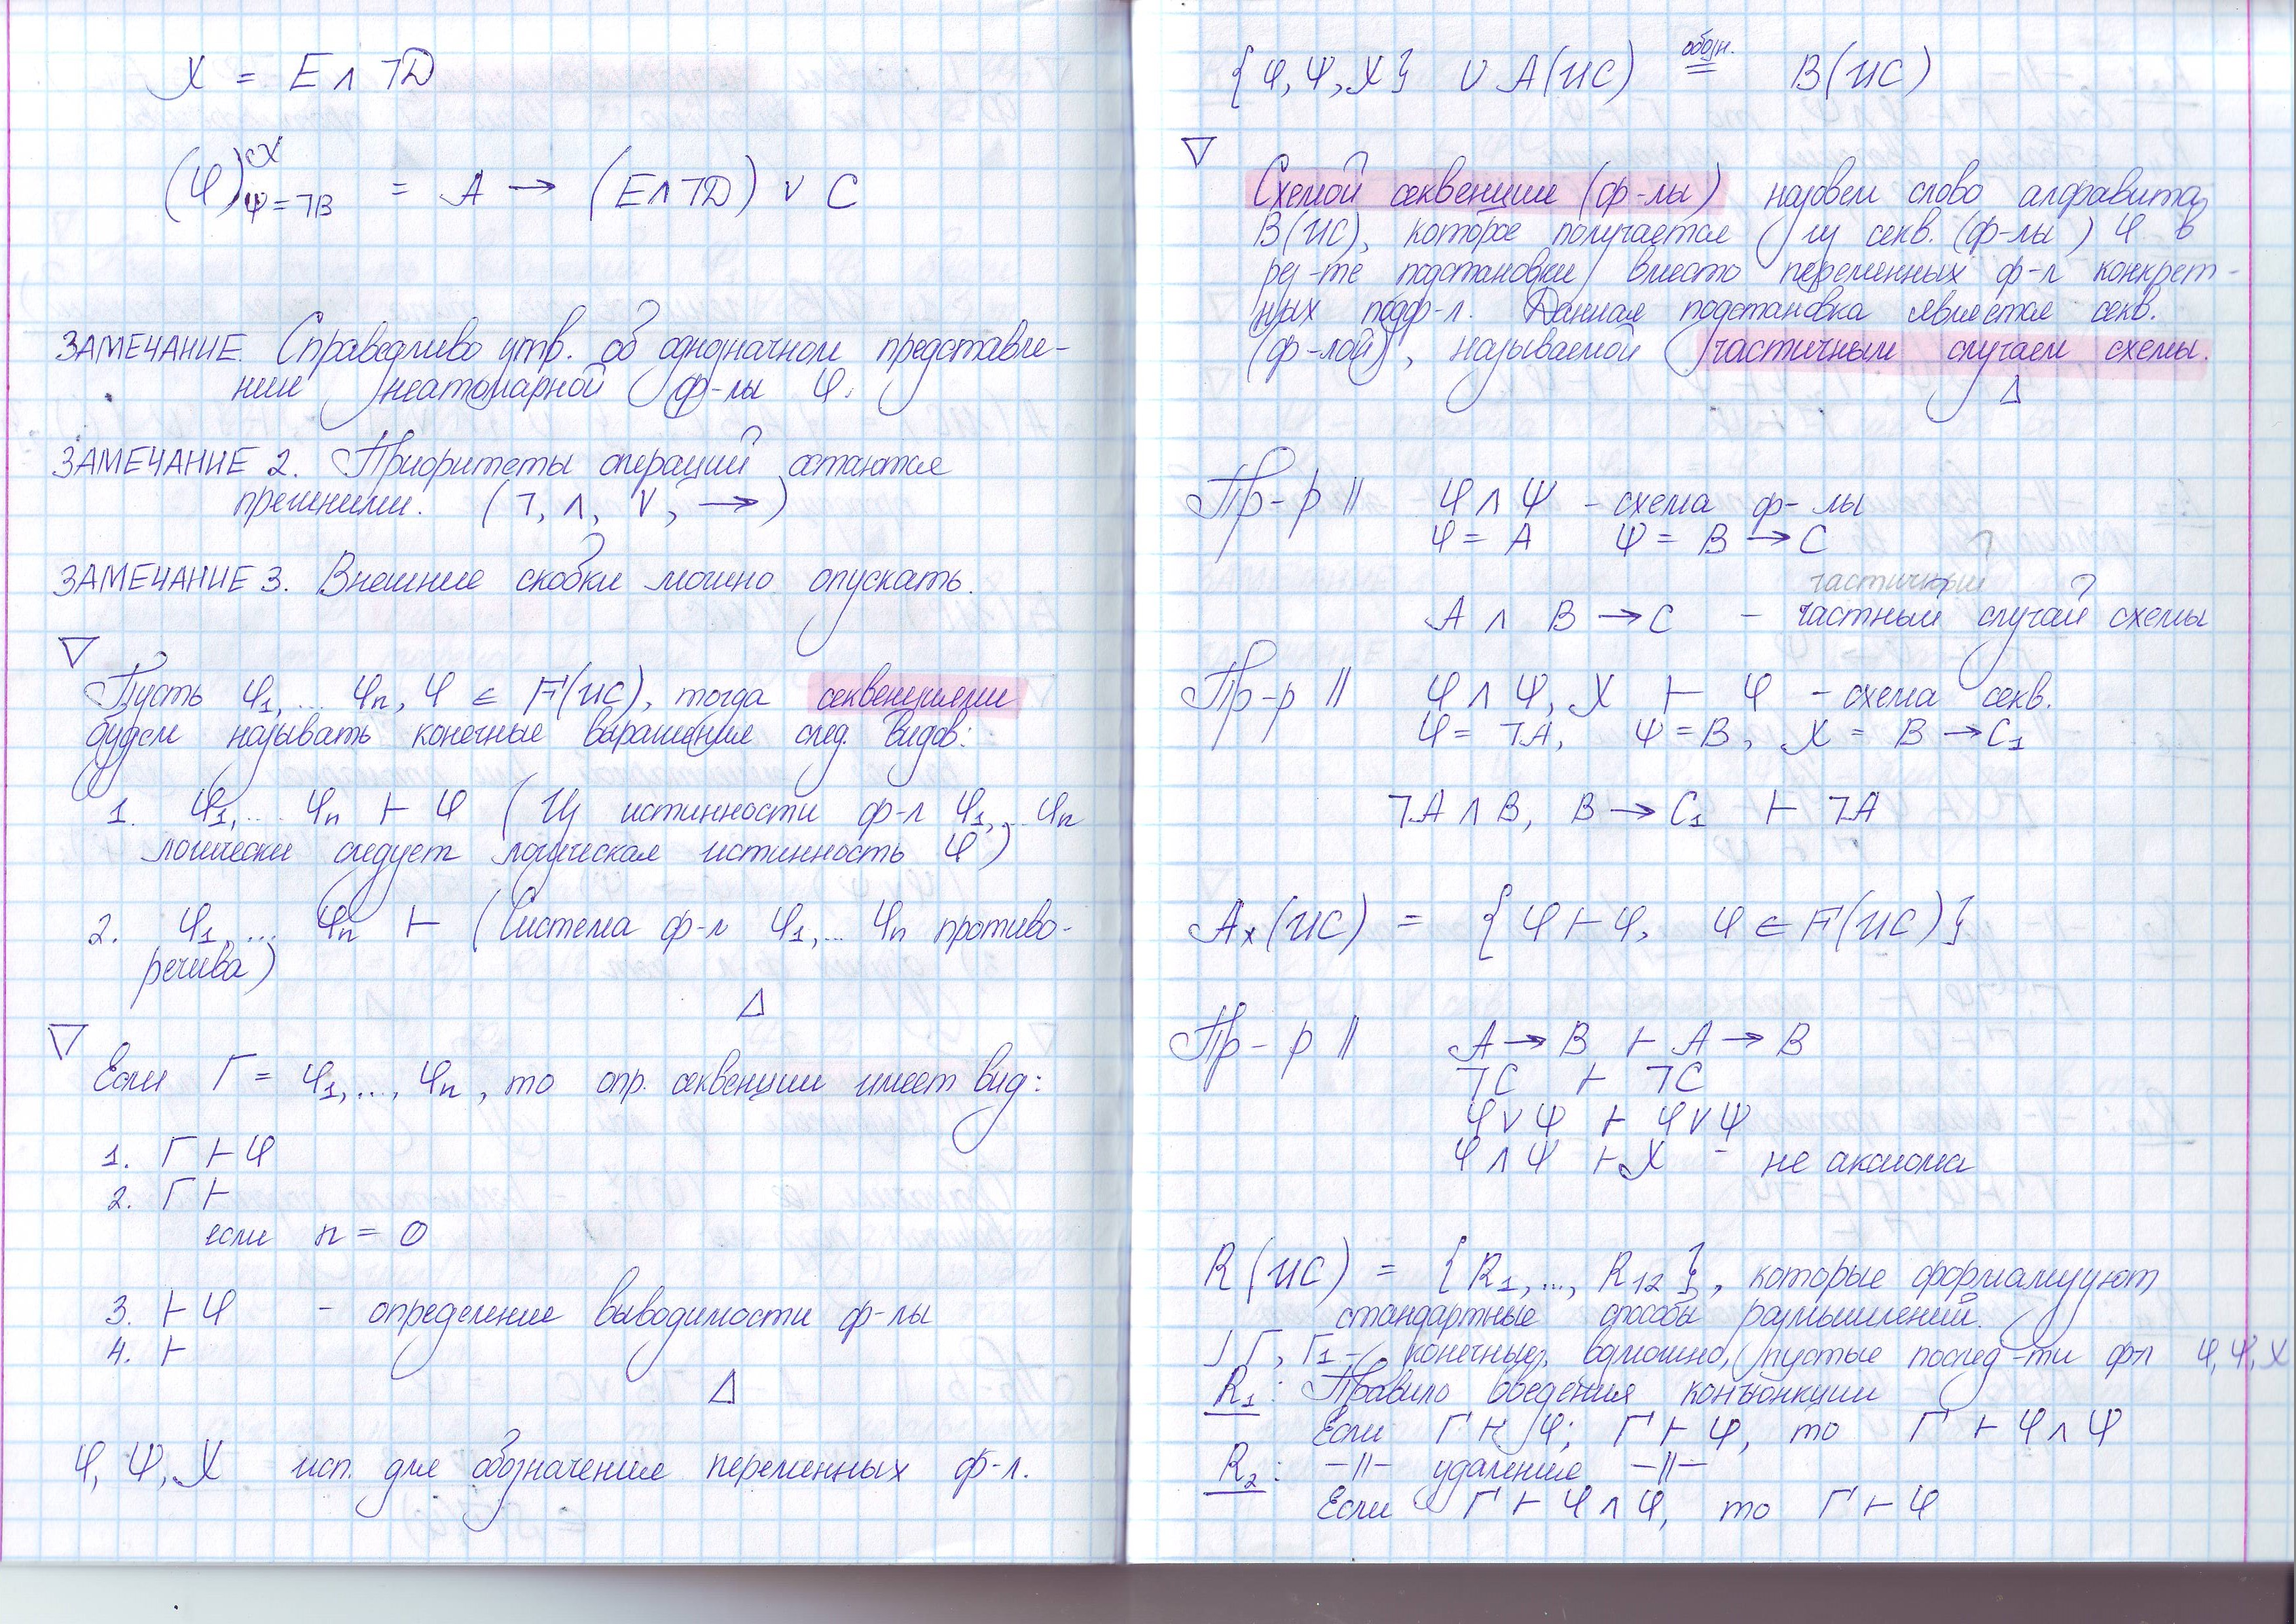 X = E ∧ ¬D
(φ)^X_{ψ=¬B} = A → (E∧¬D) ∨ C
ЗАМЕЧАНИЕ. Справедливо утв. об однозначном представле-
нии неатомарной ф-лы φ.
ЗАМЕЧАНИЕ 2. Приоритеты операций остаются
прежними. (¬, ∧, ∨, →)
ЗАМЕЧАНИЕ 3. Внешние скобки можно опускать.
▽
Пусть φ₁, ... φₙ, φ ∈ F(ИС), тогда секвенциями
будем называть конечные выражения след. видов:
1. φ₁, ... φₙ ⊢ φ (Из истинности ф-л φ₁, ... φₙ
логически следует логическая истинность φ)
2. φ₁, ... φₙ ⊢ (Система ф-л φ₁, ... φₙ противо-
речива)
△
▽
Если Г = φ₁, ..., φₙ, то опр. секвенции имеет вид:
1. Г ⊢ φ
2. Г ⊢
если n = 0
3. ⊢ φ - определение выводимости ф-лы
4. ⊢
△
φ, ψ, X исп. для обозначения переменных ф-л.
{φ, ψ, X} ∪ A(ИС) обозн. = B(ИС)
▽
Схемой секвенции (ф-лы) назовем слово алфавита
B(ИС), которое получается из секв. (ф-лы) φ в
рез-те подстановки вместо переменных ф-л конкрет-
ных подф-л. Данная подстановка является секв.
(ф-лой), называемой частичным случаем схемы.
△
Пр-р || φ ∧ ψ - схема ф-лы
φ = A ψ = B → C
частичный ?
A ∧ B → C - частный случай схемы
Пр-р || φ ∧ ψ, X ⊢ φ - схема секв.
φ = ¬A, ψ = B, X = B → C₁
¬A ∧ B, B → C₁ ⊢ ¬A
Ax(ИС) = {φ ⊢ φ, φ ∈ F(ИС)}
Пр-р || A → B ⊢ A → B
¬C ⊢ ¬C
φ ∨ ψ ⊢ φ ∨ ψ
φ ∧ ψ ⊢ X - не аксиома
R(ИС) = {R₁, ..., R₁₂}, которые формализуют
стандартные способы размышлений.
] Г, Г₁ - конечные, возможно, пустые послед-ти ф-л φ, ψ, X
R₁: Правило введения конъюнкции
Если Г ⊢ φ; Г ⊢ ψ, то Г ⊢ φ ∧ ψ
R₂: -||- удаление -||-
Если Г ⊢ φ ∧ ψ, то Г ⊢ φ